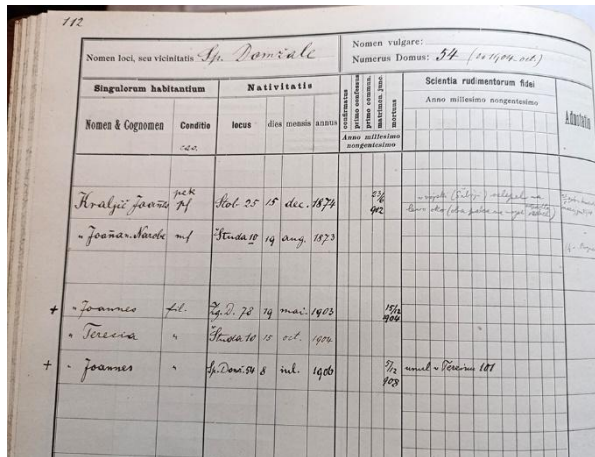 112
Nomen loci, seu vicinitatis Sp. Domžale
Nomen vulgare:
Numerus Domus: 54 (do 1904. oct.)
Singulorum habitantium
Nativitatis
confirmatus
primo confessus
primo commun.
matrimon. junc.
mortuus
Scientia rudimentorum fidei
Nomen & Cognomen Conditio locus dies mensis annus
Anno millesimo nongentesimo
Anno millesimo nongentesimo
cas.
pek
Kraljič Joannes pf Stob 25 15 dec. 1874 23/6 902
" Joanna n. Narobe mf Študa 10 19 aug. 1873
+ " Joannes fil. Zg. D. 72 19 mai. 1903 15/12 904
" Teresia " Študa 10 15 oct. 1904
+ " Joannes " Sp. Domž. 54 8 iul. 1906 5/12 908 umrl v Terezinu 101